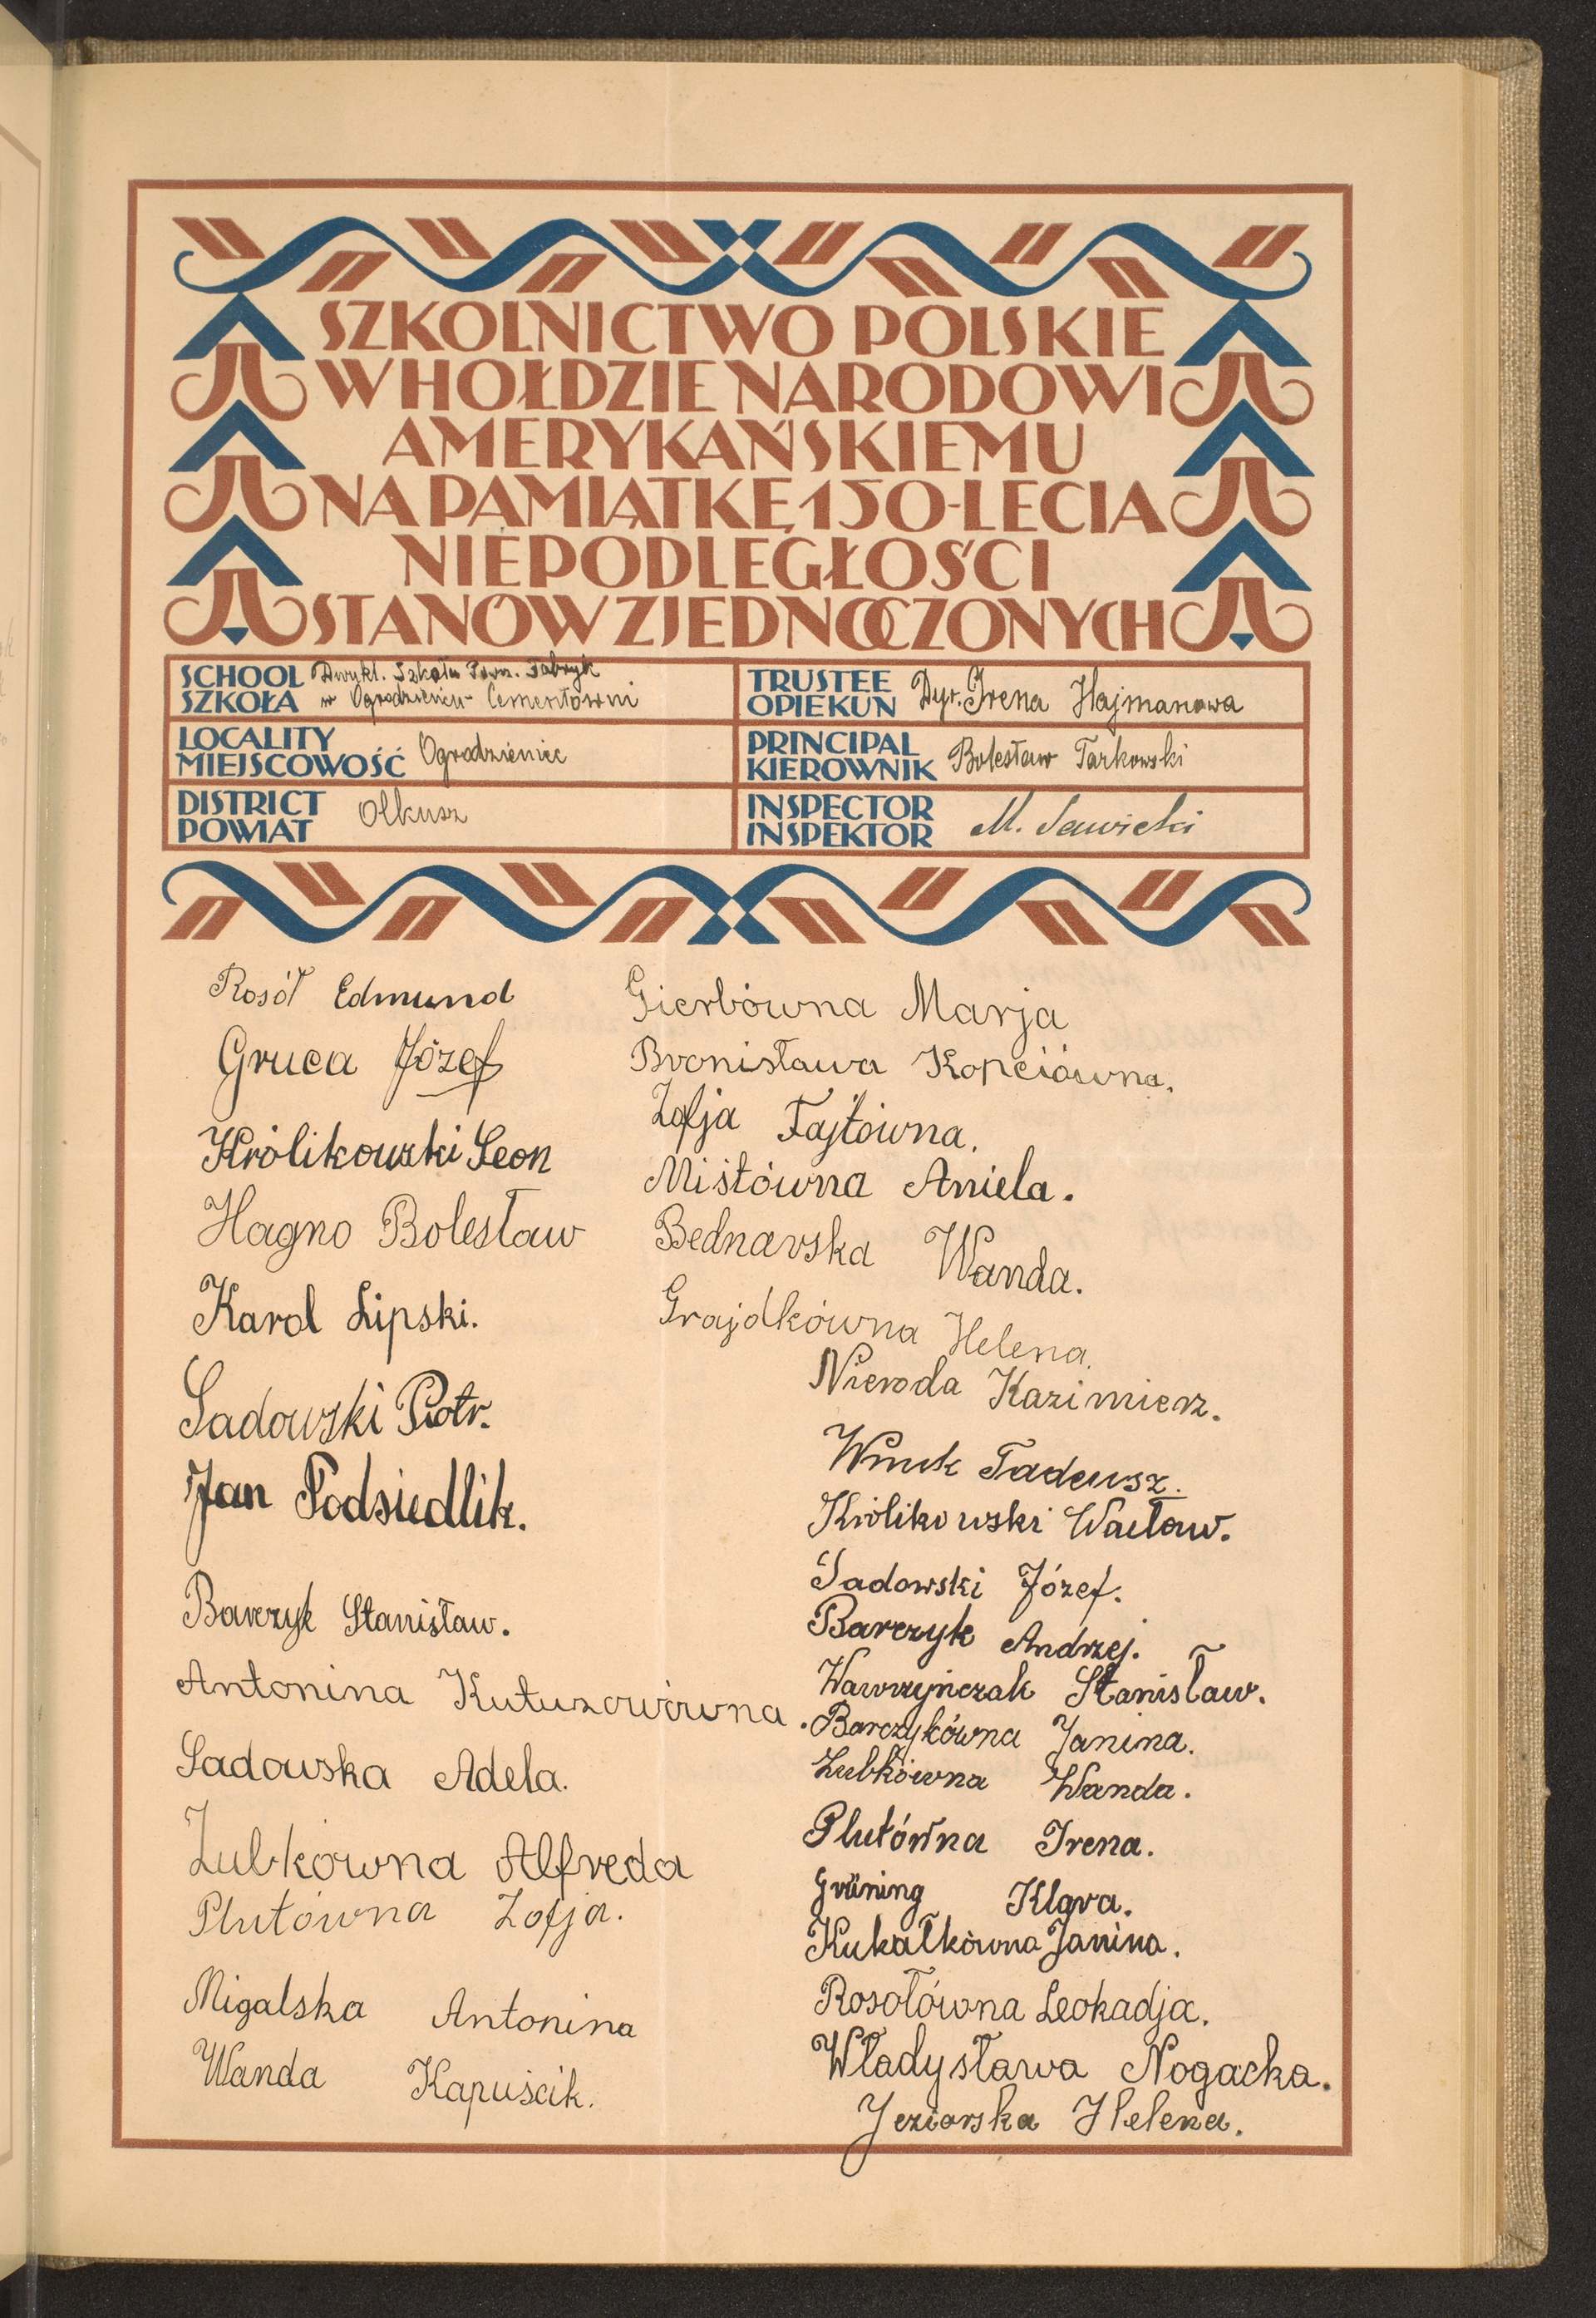 SZKOLNICTWO POLSKIE
W HOŁDZIE NARODOWI
AMERYKAŃSKIEMU
NA PAMIĄTKĘ 150-LECIA
NIEPODLEGŁOŚCI
STANÓW ZJEDNOCZONYCH
SCHOOL Dwukl. Szkoła Pow. Fabryk
SZKOŁA w Ogrodzieniu- Cementowni
TRUSTEE
OPIEKUN Dyr. Irena Hajmanowa
LOCALITY
MIEJSCOWOŚĆ Ogrodzieniec
PRINCIPAL
KIEROWNIK Bolesław Tarkowski
DISTRICT
POWIAT Olkusz
INSPECTOR
INSPEKTOR M. Sawicki
Rosół Edmund
Gruca Józef
Królikowski Leon
Hagno Bolesław
Karol Lipski.
Sadowski Piotr.
Jan Podsiedlik.
Barczyk Stanisław.
Antonina Kutuzowówna.
Sadowska Adela.
Zubkówna Alfreda
Plutówna Zofja.
Migalska Antonina
Wanda Kapuścik.
Gierbówna Marja
Bronisława Kopciówna.
Zofja Fajtówna.
Mistówna Aniela.
Bednarska Wanda.
Grajdkówna Helena.
Nieroda Kazimierz.
Wnuk Tadeusz.
Królikowski Wacław.
Sadowski Józef.
Barczyk Andrzej.
Wawrzyńczak Stanisław.
Barczykówna Janina.
Zubkówna Wanda.
Plutówna Irena.
Grüning Klara.
Kukałkówna Janina.
Rosołówna Leokadja.
Władysława Nogacka.
Jeziorska Helena.